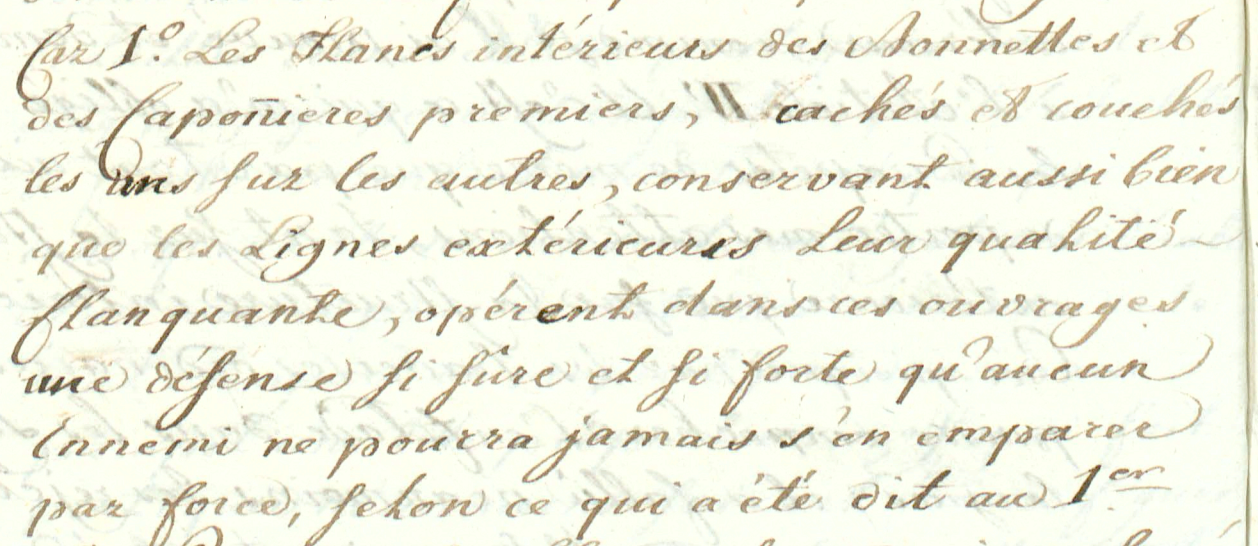 Car 1.º Les Flancs intérieurs des Bonnettes et
des Capoñieres premiers, \\ cachés et couchés
les uns sur les autres, conservant aussi bien
que les Lignes extérieures Leur qualité
flanquante, opérent dans ces ouvrages
une défense si sûre et si forte qu'aucun
Ennemi ne pourra jamais s'en emparer
par force, selon ce qui a été dit au 1er